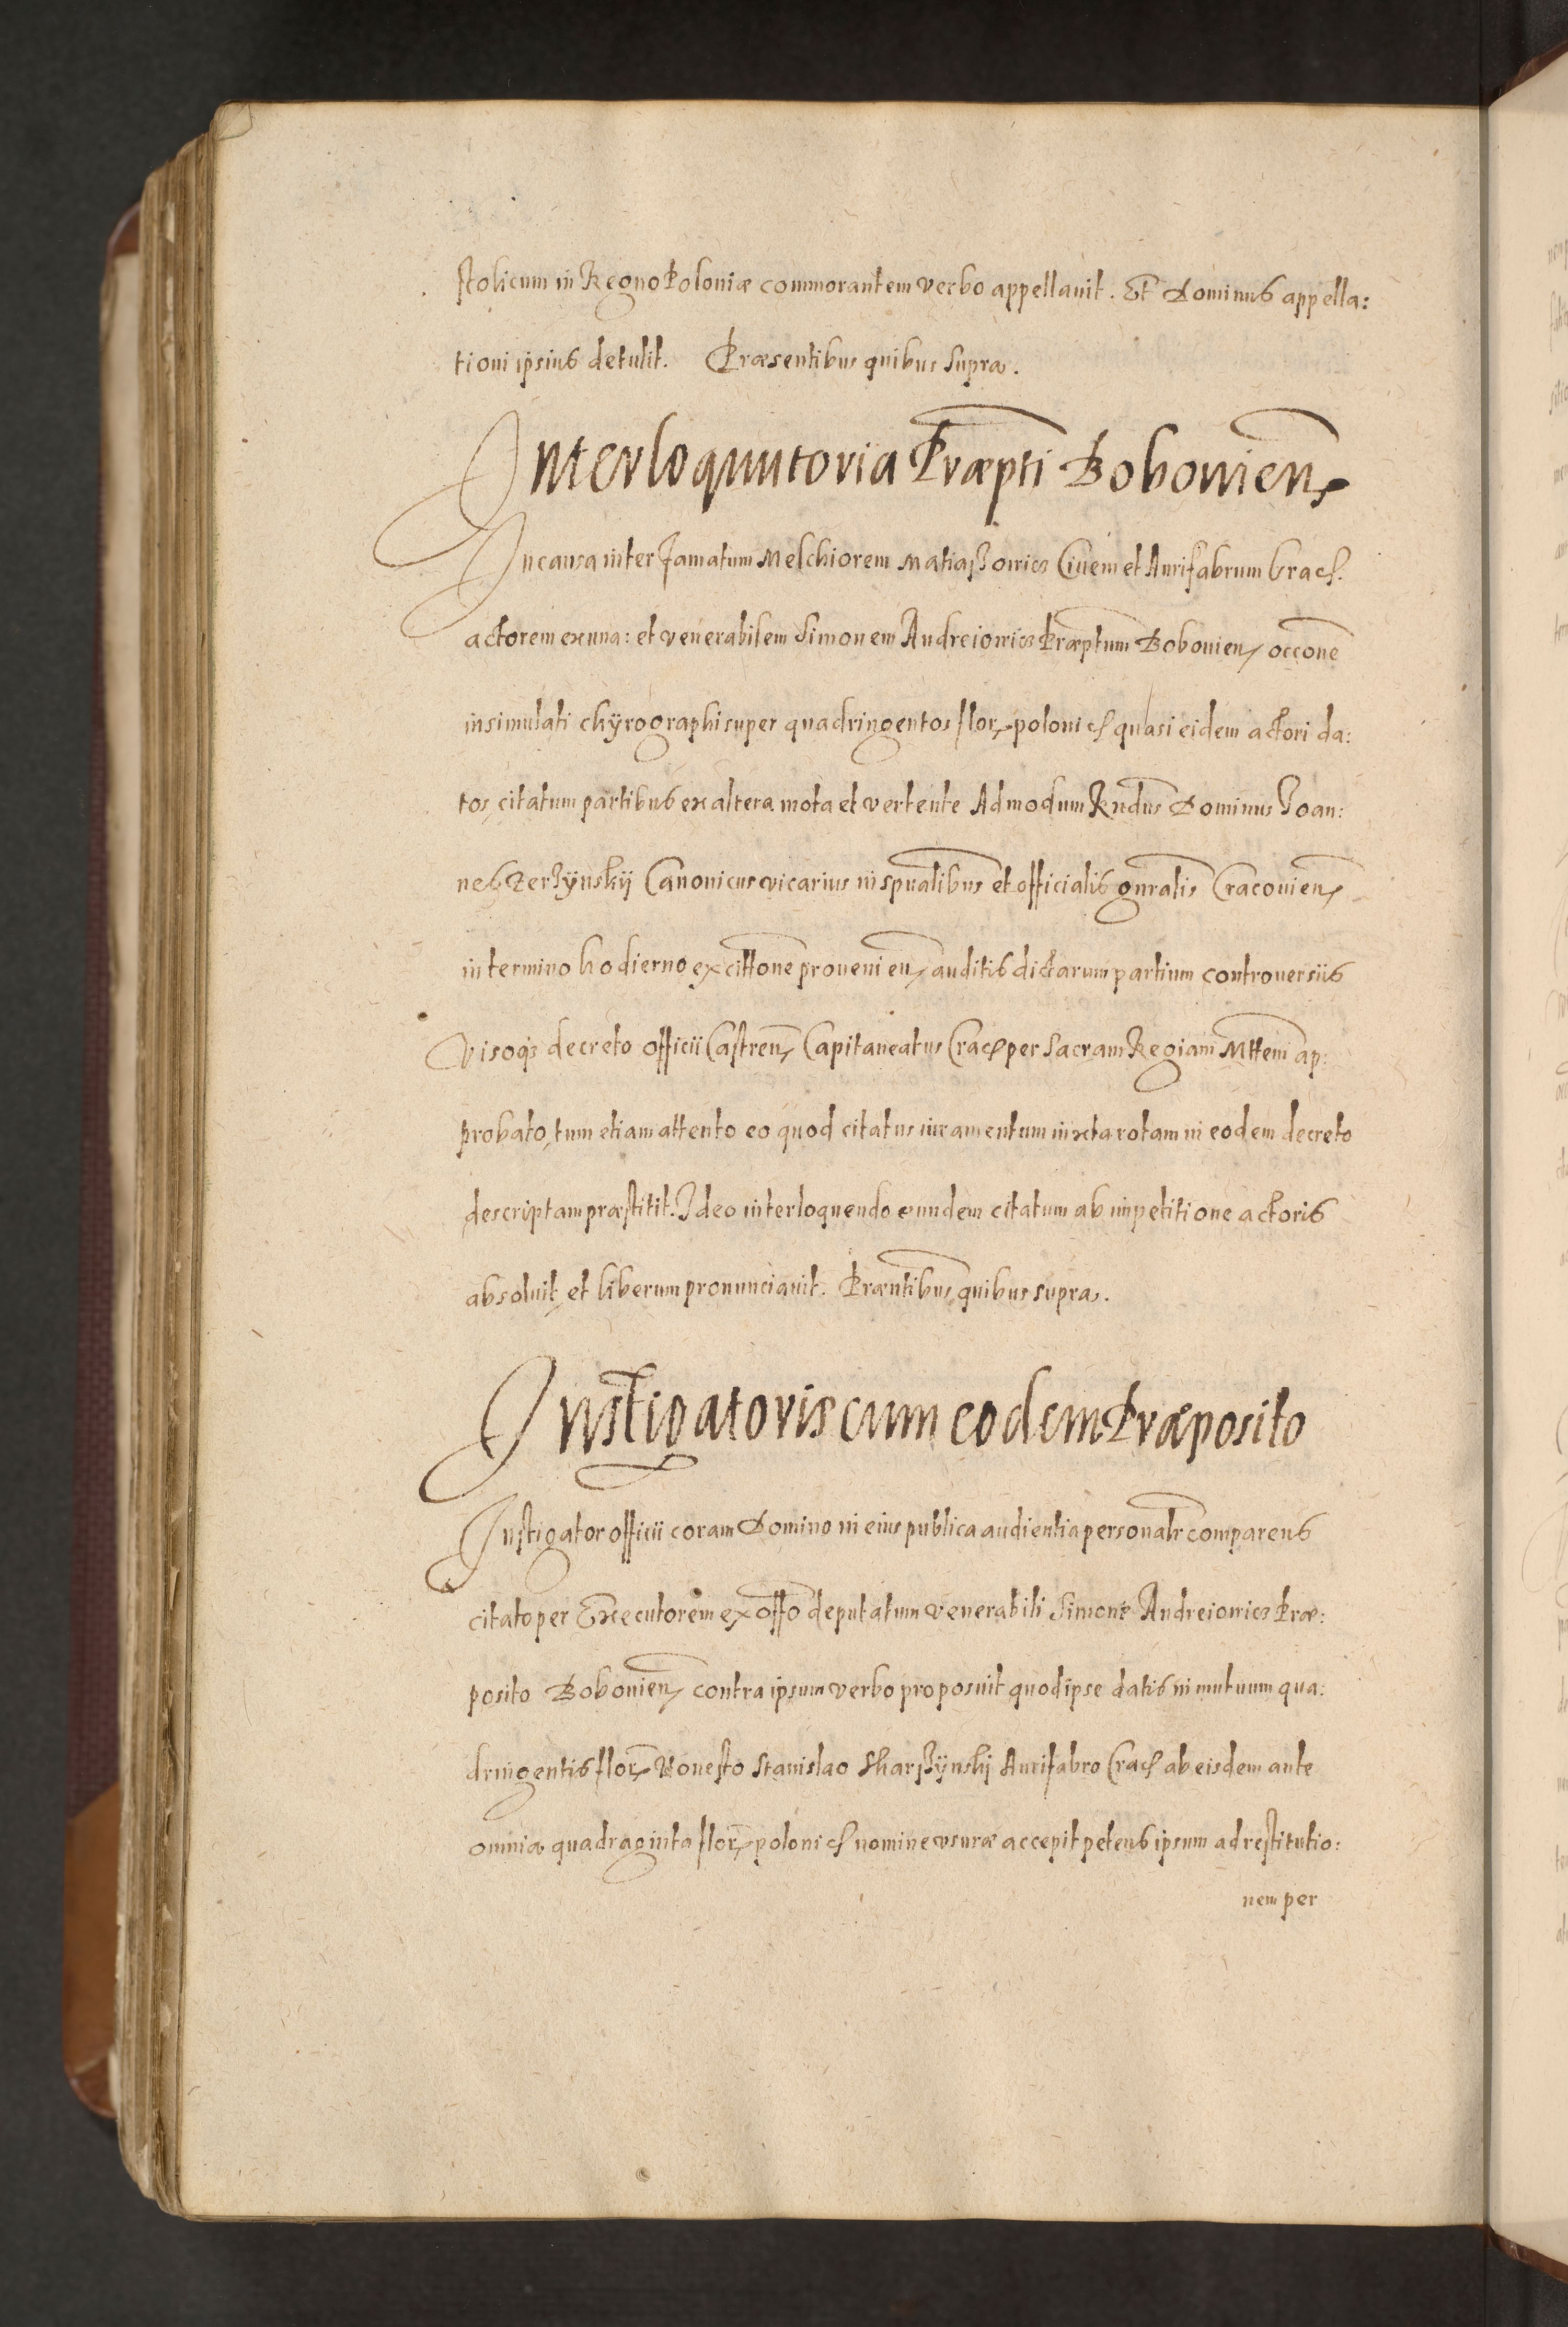 stolicum in Regno Poloniæ commorantem verbo appellauit. Et Dominus appella:
tioni ipsius detulit. Præsentibus quibus supra.
Interloquutoria Præpti Boboviens
In causa inter famatum Melchiorem Matiaszowicz Ciuem et Aurifabrum Crac.
actorem ex una: et venerabilem Simonem Andreiowicz Præptum Bobouien, occone
insimulati chÿrographi super quadringentos flor, polonic quasi eidem actori da:
tos, citatum partibus ex altera mota et vertente Admodum Rndus Dominus Joan:
nes Zerzÿnskÿ Canonicus vicarius in spualibus et officialis gnralis Cracouien,
in termino hodierno ex cittone proueni en, auditis dictarum partium controuersiis
Visoq3 decreto officii Castren, Capitaneatus Crac per Sacram Regiam Mttem ap:
probato, tum etiam attento eo quod citatus iuramentum iuxta rotam in eodem decreto
descriptam præstitit. Ideo interloquendo eundem citatum ab impetitione actoris
absoluit, et liberum pronunciauit. Præntibus quibus supra.
Instigatoris cum eodem Præposito
Instigator officii coram Domino in eius publica audientia personalr comparens
citato per Executorem ex offo deputatum venerabili Simone Andreiowicz Præ:
posito Bobouien, contra ipsum verbo proposuit quod ipse datis in mutuum qua:
dringentis flor, Honesto Stanislao Skarszÿnskj Aurifabro Crac ab eisdem ante
omnia quadraginta flor, polonic nomine vsuræ accepit petens ipsum ad restitutio:
nem per